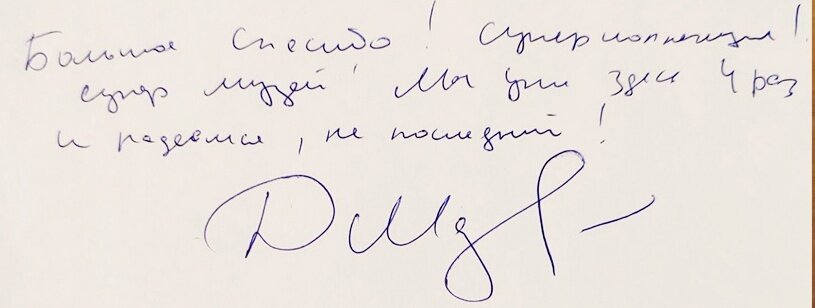 Большое спасибо! Суперколлекция!
супер музей! Мы уже здесь 4 раз
и надеемся, не последний!